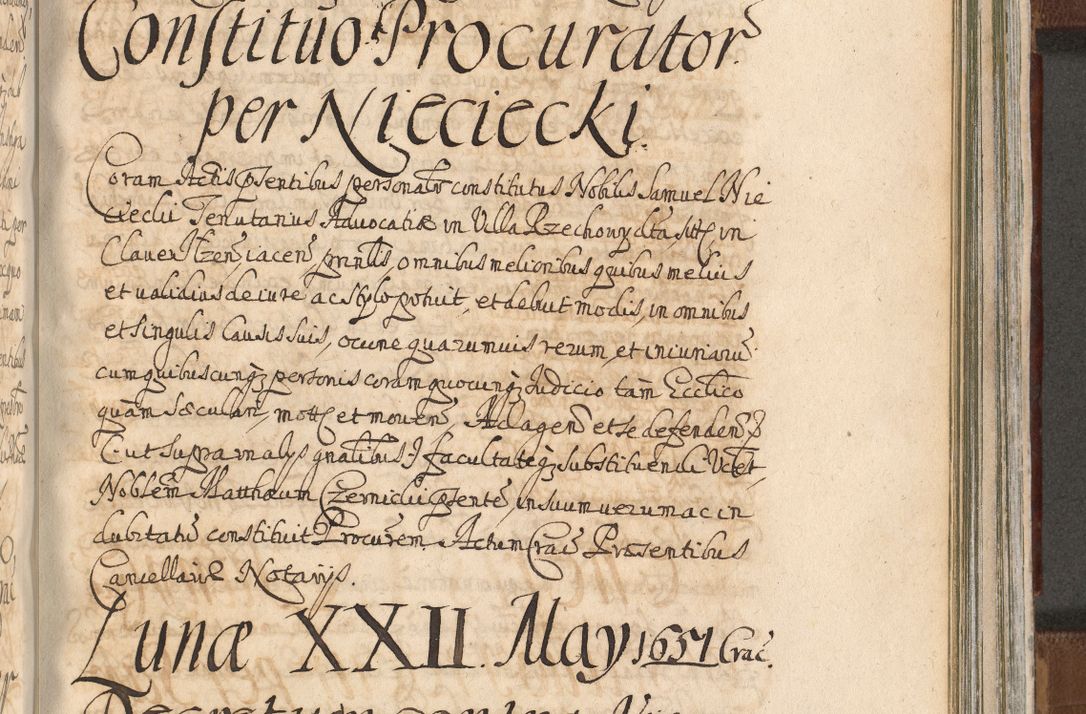 Constitutio Procurator
per Nieciecki.
Coram Actis pñtibus personalr constitutus Nobilis Samuel Nie
ciecki Tenutarius Advocatiæ in Villa Rzechow dicta sitt in
Claver Itzen iacen gñnlis, omnibus melioribus quibus melius
et validius de iure ac stylo potuit, et debuit modis, in omnibus
et singulis Causis suis, ac une quarumvis rerum, et iniuriarũ
cum quibuscunq personis coram quocunq Iudicio tam Ecclico
quàm sæculari, mott et moven, Ad agen et se defenden
ut supra in alijs gnalibus facultateq substituendi
Noblem Matthæum Czernicki pñtente, in suum verum ac in
dubitatũ constituit Procurem. Actum Crac Præsentibus
Cancellariæ Notarijs.
Lunæ XXII. May 1651 Crac.